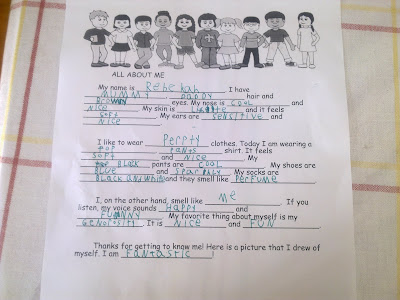 ALL ABOUT ME
My name is Rebekah. I have
mummy daddy hair and
Brown eyes. My nose is cool and
nice. My skin is and it feels
soft. My ears are sensitive and
nice
I like to wear perpty clothes. Today I am wearing a
top pants shirt. It feels
soft and nice. My
Black pants are cool. My shoes are
BLUe and sparkaly. My socks are
Black and white and they smell like perfume.
I, on the other hand, smell like me. If you
listen, my voice sounds Happy and
Funny. My favorite thing about myself is my
Genorosity. It is Nice and FUN.
Thanks for getting to know me! Here is a picture that I drew of
myself. I am Fantastic!